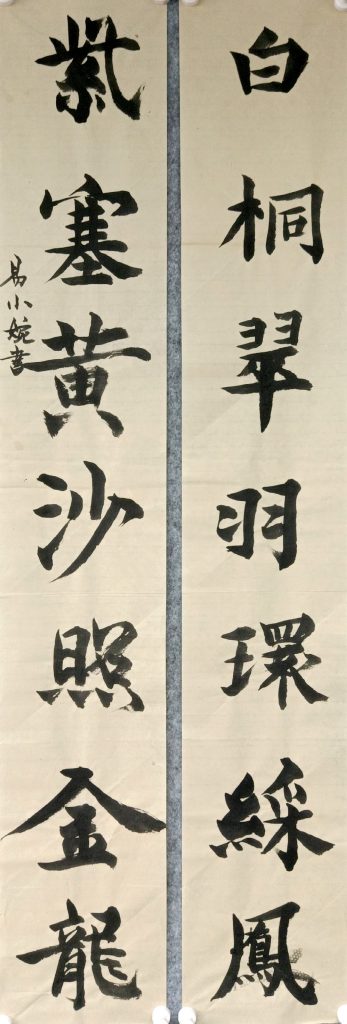 白桐翠羽環綵鳳
紫塞黃沙照金龍
易小婉書